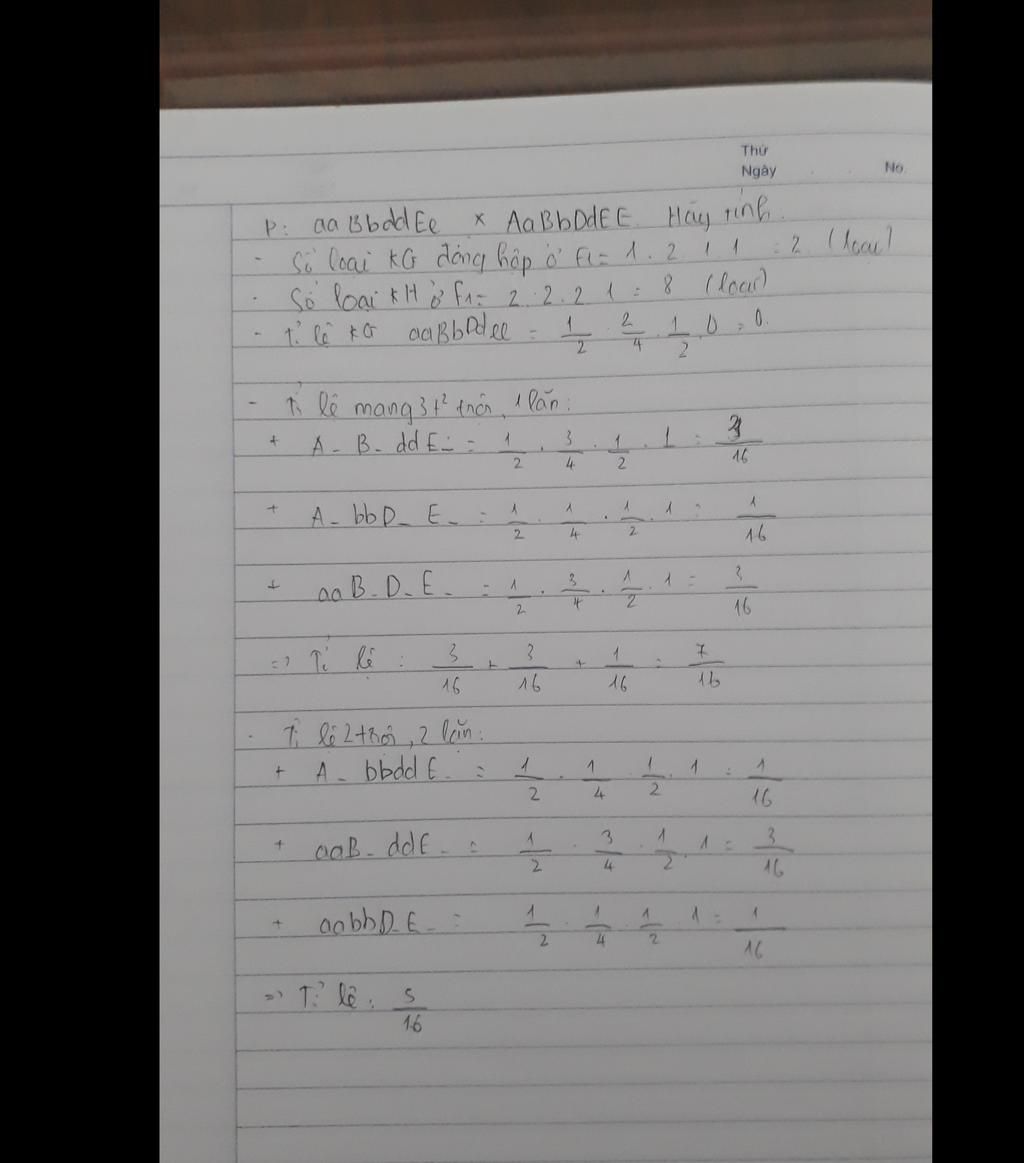 Thứ
Ngày No.
P: aaBbddEe × AaBbDdEE. Hãy tính.
- Số loại KG đồng hợp ở F1 = 1 . 2 . 1 . 1 = 2 (loại)
- Số loại KH ở F1 = 2 . 2 . 2 . 1 = 8 (loại)
- Tỉ lệ KG aaBbDdee = 1/2 . 2/4 . 1/2 . 0 = 0.
- Tỉ lệ mang 3t² trội, 1 lặn:
+ A_ B_ ddE_ = 1/2 . 3/4 . 1/2 . 1 = 3/16
+ A_ bbD_ E_ = 1/2 . 1/4 . 1/2 . 1 = 1/16
+ aaB_ D_ E_ = 1/2 . 3/4 . 1/2 . 1 = 3/16
=> Tỉ lệ : 3/16 + 3/16 + 1/16 = 7/16
- Tỉ lệ 2 trội, 2 lặn:
+ A_ bbddE_ = 1/2 . 1/4 . 1/2 . 1 = 1/16
+ aaB_ ddE_ = 1/2 . 3/4 . 1/2 . 1 = 3/16
+ aabbD_ E_ = 1/2 . 1/4 . 1/2 . 1 = 1/16
=> Tỉ lệ : 5/16